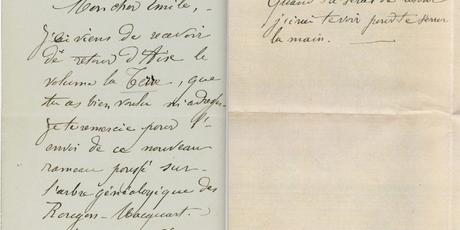 Mon cher Emile,
J'ai viens de recevoir
de retour d'Aix le
volume la Terre, que
tu as bien voulu m'adres-
Je te remercie pour l'
envoi de ce nouveau
rameau poussé sur
l'arbre généalogique des
Rougon-Macquart.
j'irai te voir pour te serrer
la main.